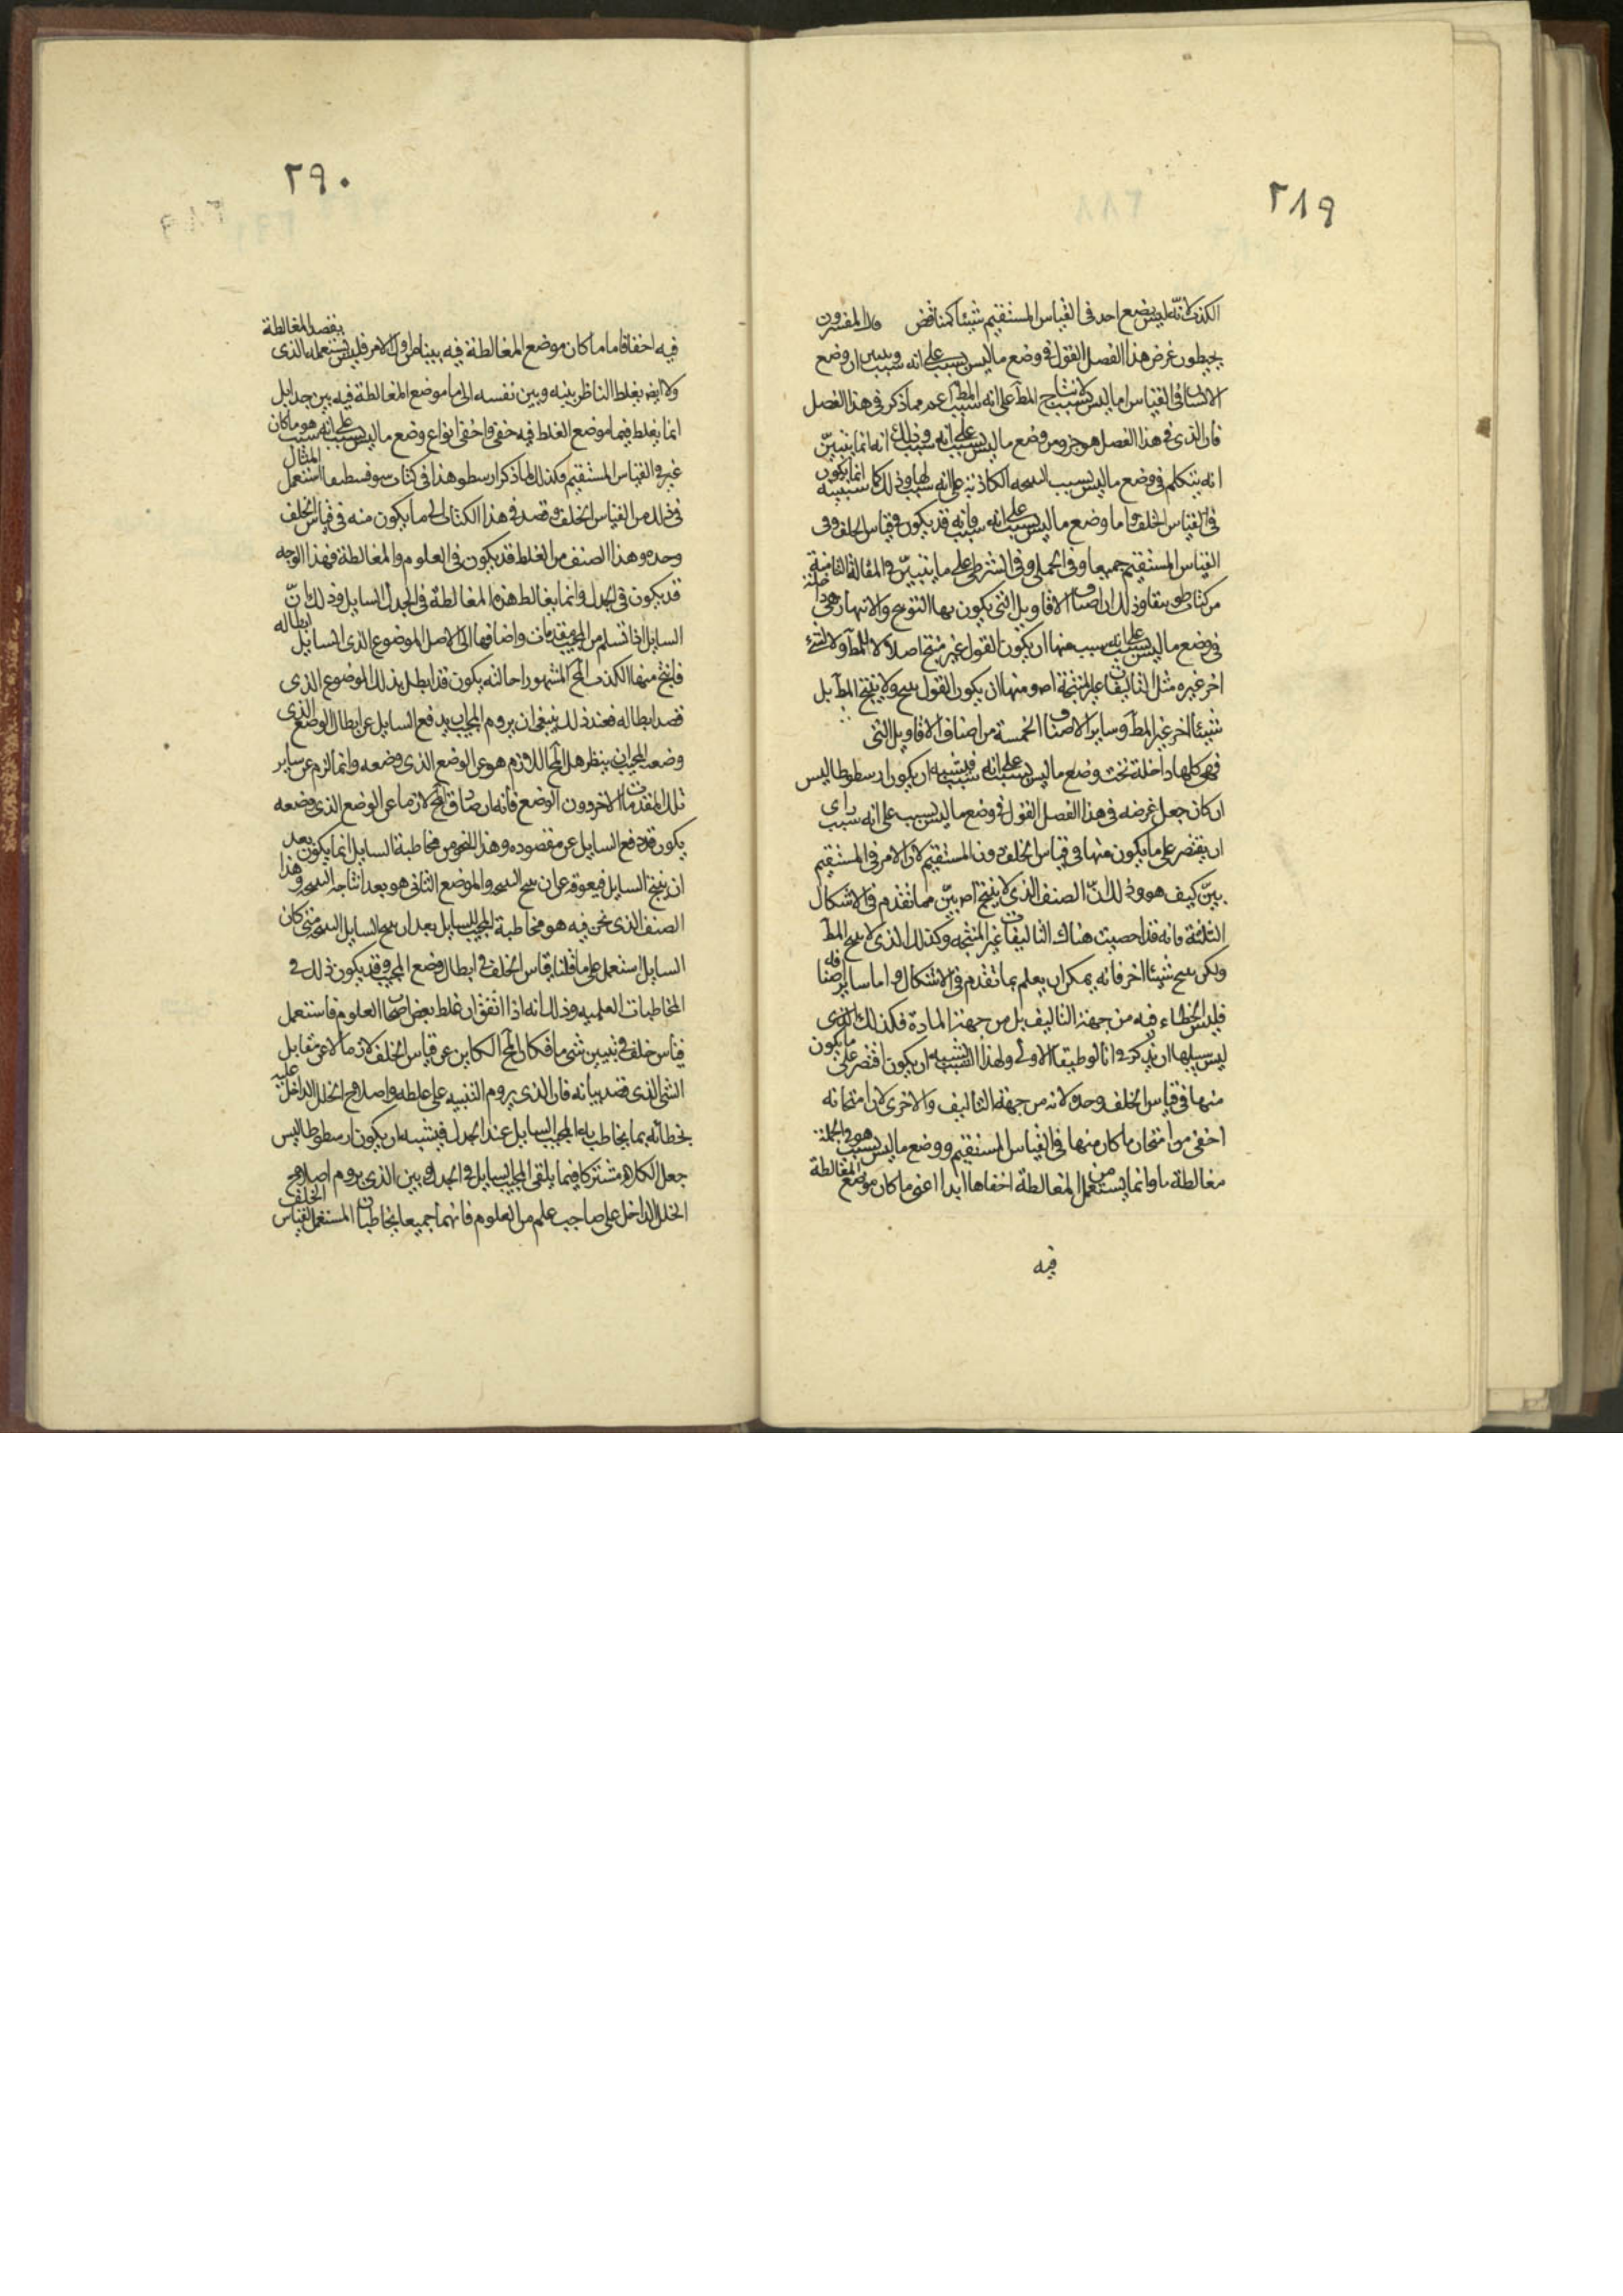 ٢٨٩
الكذب لانه ليس يضع احد في القياس المستقيم شيئا كمناقض قال المفسرون
يجعلون غرض هذا الفصل القول في وضع ما ليس بسبب على انه سبب وليس ان وضع
الانسان في القياس امرا ليس لانتاج المط على انه سبب المط اعم مما ذكر في هذا الفصل
فان الذي في هذا الفصل هو جزو من وضع ما ليس بسبب على انه سبب وذلك انه انما يتبين
انه يتكلم في وضع ما ليس بسبب النتيجه الكاذبة على انه سبب لها وذلك انما يكون
في القياس الخلف واما وضع ما ليس بسبب على انه سبب فانه قد يكون في قياس الخلف وفي
القياس المستقيم جميعا وفي الحملي وفي الشرطي على ما يتبين في المقالة الثامنة
من كتاب طوبيقا وذلك ان اصناف الاقاويل التي يكون بها التوبيخ والانتهار هي داخلة
في وضع ما ليس بسبب على انه سبب منها ان يكون القول غير منتج اصلا لا للمط ولا لشئ
اخر غيره مثل التاليفات غير المنتجة اص ومنها ان يكون القول ينتج ولا ينتج المط بل
شيئا اخر غير المط وساير الاصناف الخمسة من اصناف الاقاويل التي
فهي كلها داخلة تحت وضع ما ليس بسبب على انه سبب فيشبه ان يكون ارسطوطاليس
ان كان جعل غرضه في هذا الفصل القول في وضع ما ليس بسبب على انه سبب راى
ان يقتصر على ما يكون منها في قياس الخلف دون المستقيم لان الامر في المستقيم
بيّن كيف هو وذلك انّ الصنف الذي لا ينتج اص بيّن مما تقدم في الاشكال
الثلثة فانه قد احصيت هناك التاليفات غير المنتجه وكذلك الذي لا ينتج المط
ولكن ينتج شيئا اخر فانه يمكن ان يعلم بما تقدم في الاشكال واما ساير اصنافه
فليس الخطاء فيه من جهة التاليف بل من جهة المادة فكذلك الذي
ليس سبيلها ان يذكر في انالوطيقا الاولى ولهذا السبب يشبه ان يكون اقتصر على ما يكون
منها في قياس الخلف وحده لانه من جهة التاليف والاخرى لان امتحانه
اخفى من امتحان ما كان منها في القياس المستقيم ووضع ما ليس بسبب هو في الجملة
مغالطة ما وانما يستعمل من المغالطة اخفاها ابدا اعني ما كان موضع المغالطة
فيه
٢٩٠
فيه اخفا فاما ما كان موضع المغالطة فيه بينا من اول الامر فليس يستعمله الذي يقصد المغالطة
ولا ايضا يغلط الناظر بينه وبين نفسه الى ما موضع المغالطة فيه بين جدا بل
انما يغلط فيما موضع الغلط فيه خفي واخفى انواع وضع ما ليس بسبب على انه سبب هو ما كان
غير في القياس المستقيم وكذلك لما ذكر ارسطو هذا في كتاب سوفسطيقا استعمل المثال
في ذلك من القياس الخلف وقصد في هذا الكتاب الى ما يكون منه في قياس الخلف
وحده وهذا الصنف من الغلط قد يكون في العلوم والمغالطة فهذا الوجه
قد يكون في الجدل وانما يغالط هذه المغالطة في الجدل السايل وذلك انّ
السايل اذا تسلم من المجيب مقدمات واضافها الى الاصل الموضوع الذي السايل ابطاله
فانتج منها الكذب المح المشهور احالته يكون قد ابطل بذلك الموضوع الذي
قصد ابطاله فعند ذلك ينبغي ان يروم المجيب ان يدفع السايل عن ابطال الوضع الذي
وضعه المجيب ان ينظر هل المحال اللازم هو عن الوضع الذي وضعه وانما لزم عن ساير
تلك المقدمات الاخر دون الوضع فانه ان صادق المح لازما عن الوضع الذي وضعه
يكون قد دفع السايل عن مقصوده وهذا النحو من مخاطبة السايل انما يكون بعد
ان ينتج السايل فيعوقه عن ان ينتج النتيجه والموضع الثاني هو بعد انتاجه النتيجه وهذا
الصنف الذي نحن فيه هو مخاطبة المجيب للسايل بعد ان ينتج السايل النتيجه متى كان
السايل استعمل على ما قلنا قياس الخلف في ابطال وضع المجيب وقد يكون ذلك في
المخاطبات العلمية وذلك انه اذا اتفق ان غلط بعض اصحاب العلوم فاستعمل
قياس خلف في تبيين شئ ما فكان المح الكاين عن قياس الخلف لازما لا عن مقابل
الشئ الذي قصد بيانه فان الذي يروم التنبيه على غلطه واصلاح الخلل الداخل عليه
يخطائه بما يخاطب به المجيب السايل عند الجدل فيشبه ان يكون ارسطوطاليس
جعل الكلام مشتركا فيما يلقى المجيب السايل في الجدل وبين الذي يروم اصلاح
الخلل الداخل على صاحب علم من العلوم فانهما جميعا يخاطبان المستعمل لقياس الخلف